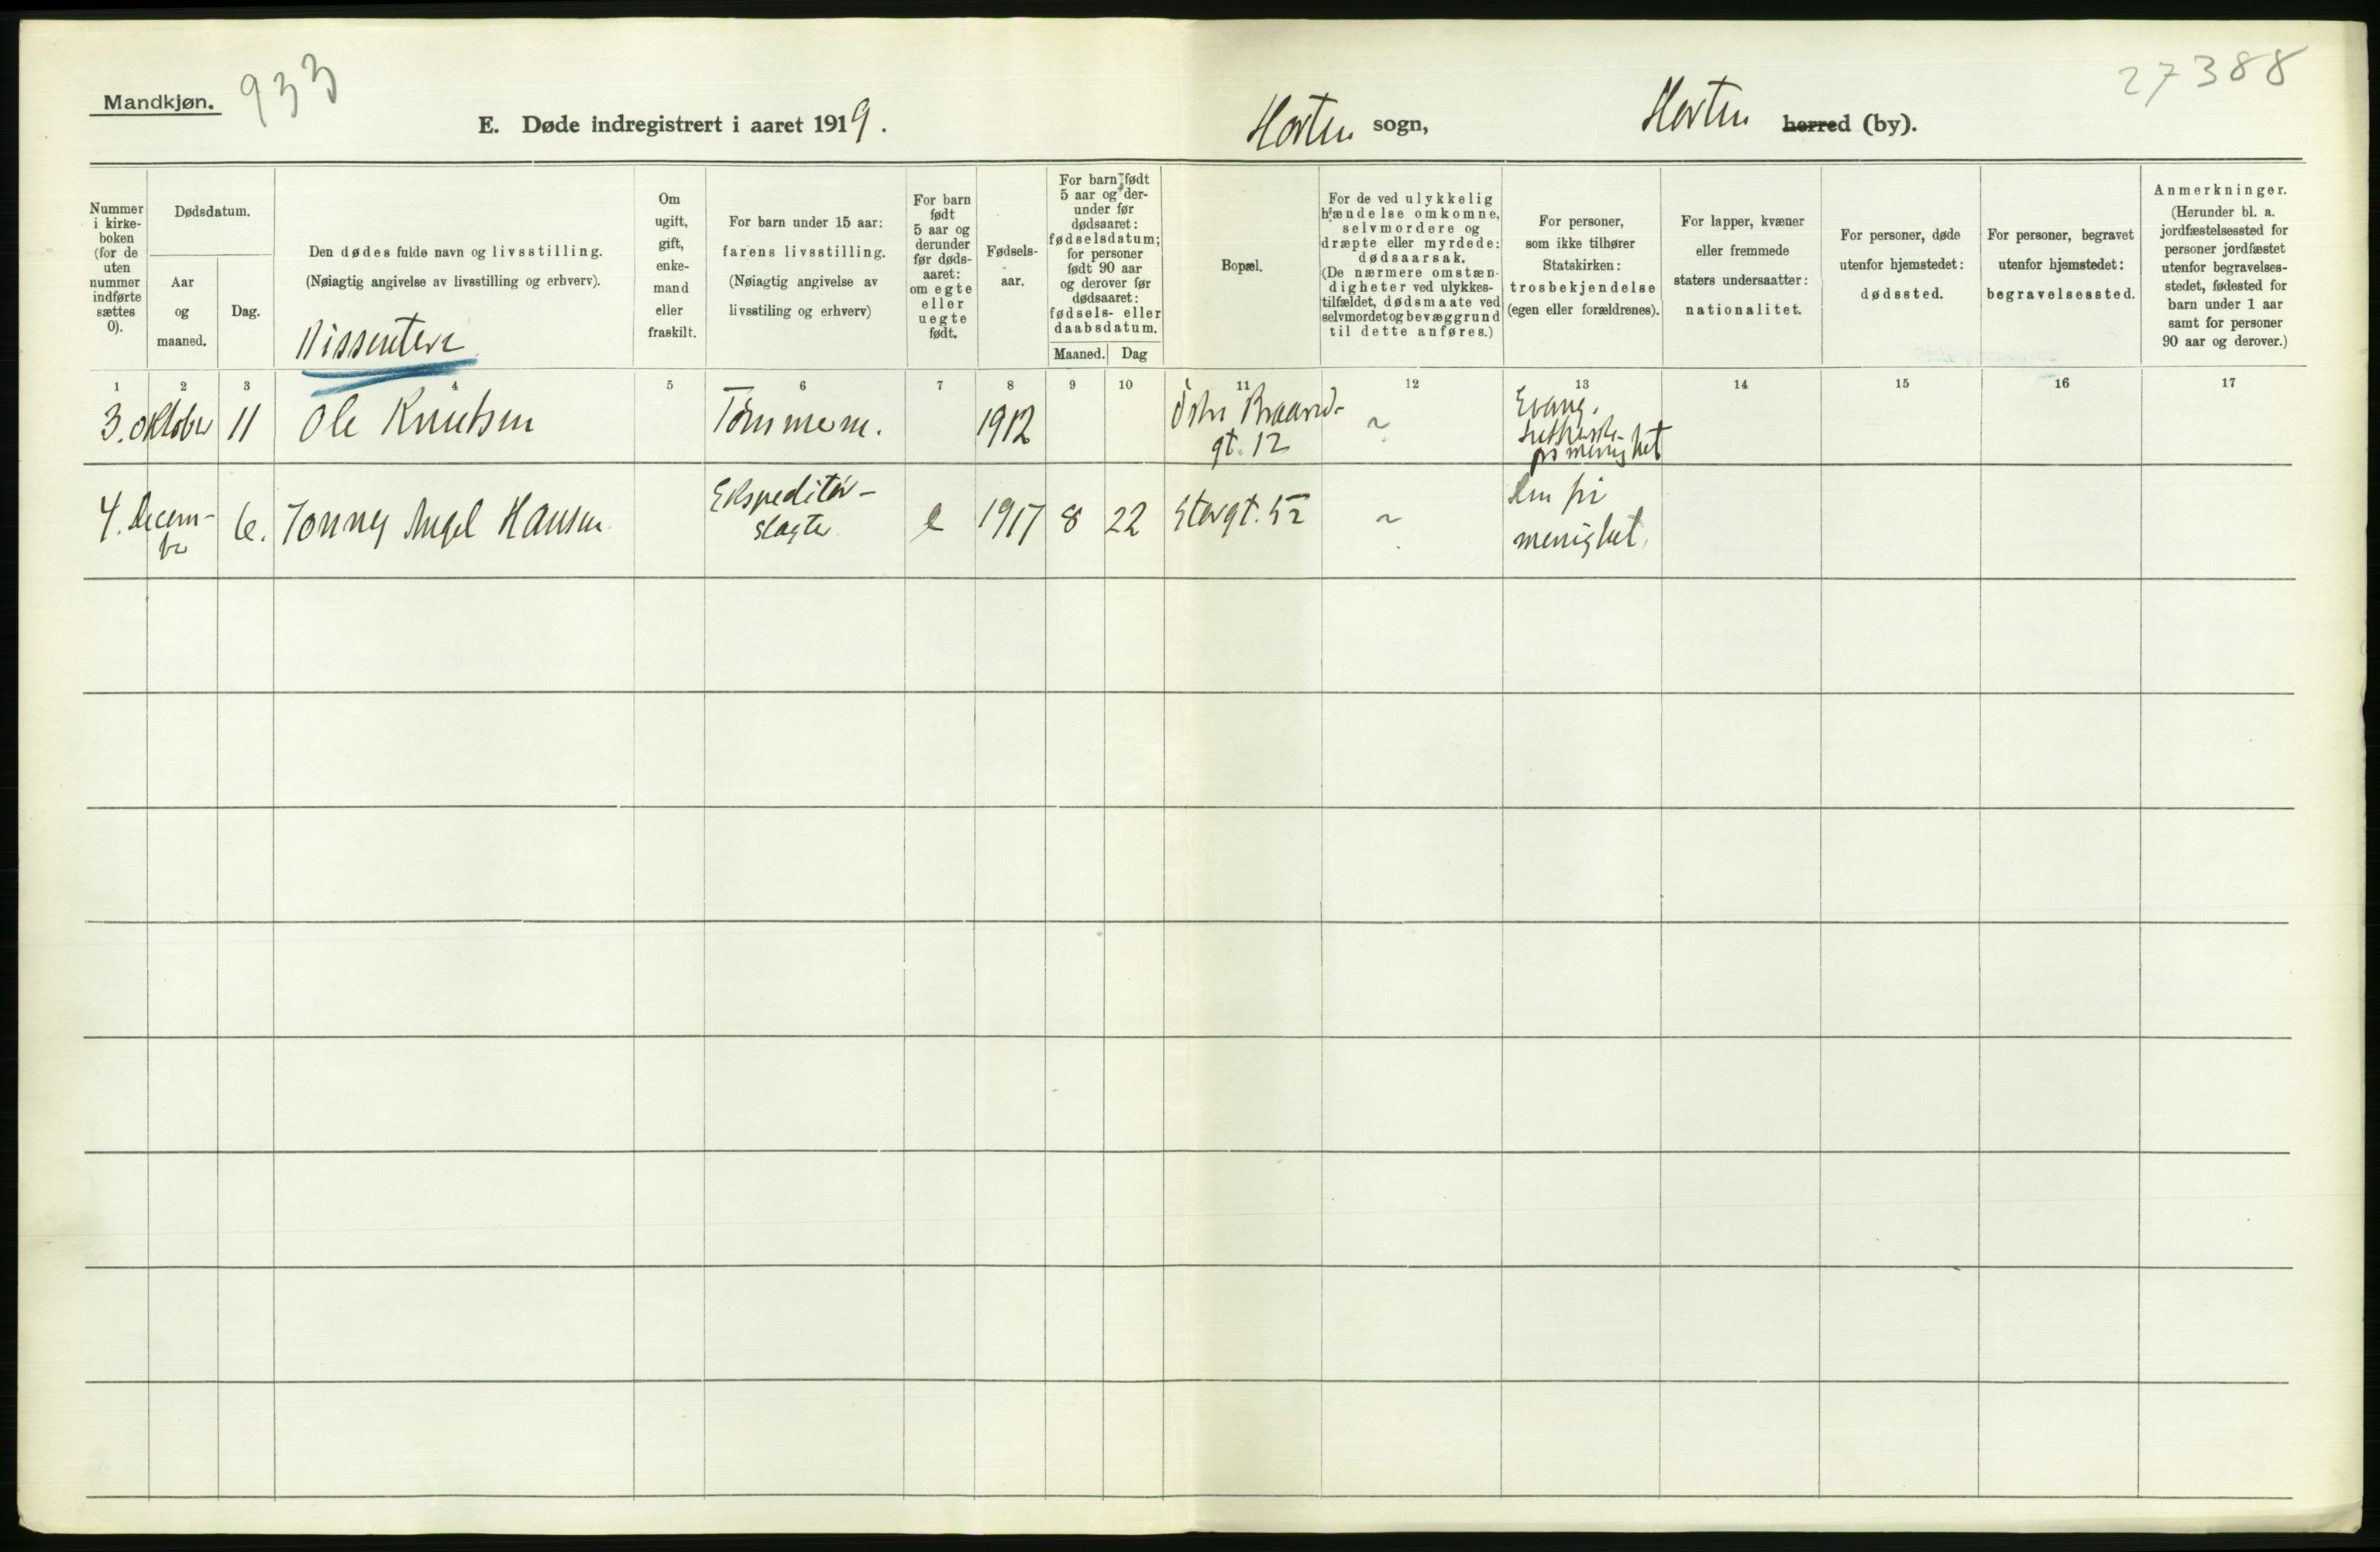 Mandkjøn.
933
27388
E. Døde indregistrert i aaret 1919.
Horten sogn,
Horten herred (by).
Nummer i kirke- boken (for de uten nummer indførte sættes 0).
Dødsdatum.
Aar og maaned.
Dag.
Den dødes fulde navn og livsstilling.
(Nøiagtig angivelse av livsstilling og erhverv).
Dissentere
Om ugift, gift, enke- mand eller fraskilt.
For barn under 15 aar:
farens livsstilling.
(Nøiagtig angivelse av
livsstiling og erhverv)
For barn født 5 aar og derunder før døds- aaret: om egte eller uegte født.
Fødsels- aar.
For barn født 5 aar og der- under før dødsaaret: fødselsdatum; for personer født 90 aar og derover før dødsaaret: fødsels- eller daabsdatum.
Maaned. Dag
Bopæl.
For de ved ulykkelig hændelse omkomne, selvmordere og dræpte eller myrdede: dødsaarsak. (De nærmere omstæn- digheter ved ulykkes- tilfældet, dødsmaate ved selvmordet og bevæggrund til dette anføres.)
For personer, som ikke tilhører Statskirken: trosbekjendelse (egen eller forældrenes).
For lapper, kvæner eller fremmede staters undersaatter: nationalitet.
For personer, døde utenfor hjemstedet: dødssted.
For personer, begravet utenfor hjemstedet: begravelsessted.
Anmerkninger.
(Herunder bl. a. jordfæstelsessted for personer jordfæstet utenfor begravelses- stedet, fødested for barn under 1 aar samt for personer 90 aar og derover.)
1 2 3 4 5 6 7 8 9 10 11 12 13 14 15 16 17
3. Oktober 11 Ole Knutsen Tømmerm. 1912
gt. 12
Evang.
Luthersk
frimenighet
4. Decem-
ber
6. Tonny Angel Hansen
Ekspeditør-
slagter
e 1917 8 22 Storgt. 52 ~
Den fri
menighet.